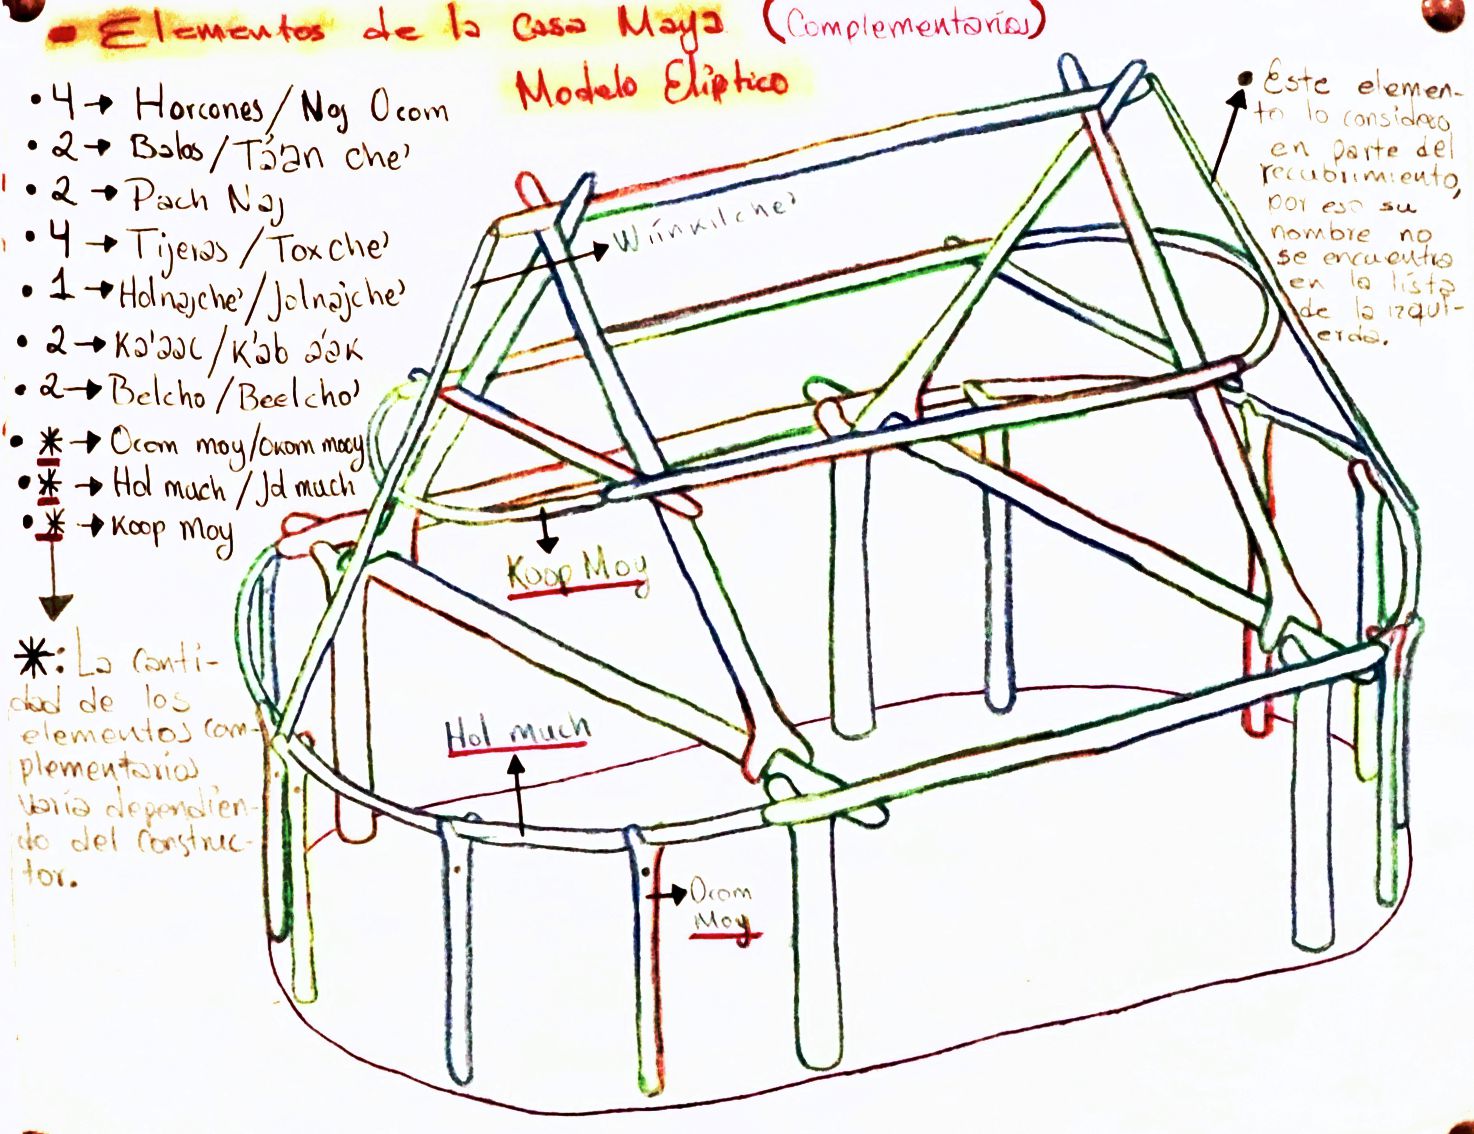 Elementos de la casa Maya (Complementarios)
Modelo Elíptico
• 4 → Horcones / Noj Ocom
• 2 → Balos / Tá'an che'
• 2 → Pach Naj
• 4 → Tijeras / Tox che'
• 1 → Holnajche' / Jolnajche'
• 2 → Ka'aac / K'ab áák
• 2 → Belcho / Beelcho'
• * → Ocom moy / Okom mooy
• * → Hol much / Jol much
• * → Koop Moy
*: La canti-
dad de los
elementos com-
plementarios
varía dependien-
do del construc-
tor.
Wiinkilche'
Koop Moy
Hol much
Ocom
Moy
• Este elemen-
to lo considero
en parte del
recubrimiento,
por eso su
nombre no
se encuentra
en la lista
de la izqui-
erda.